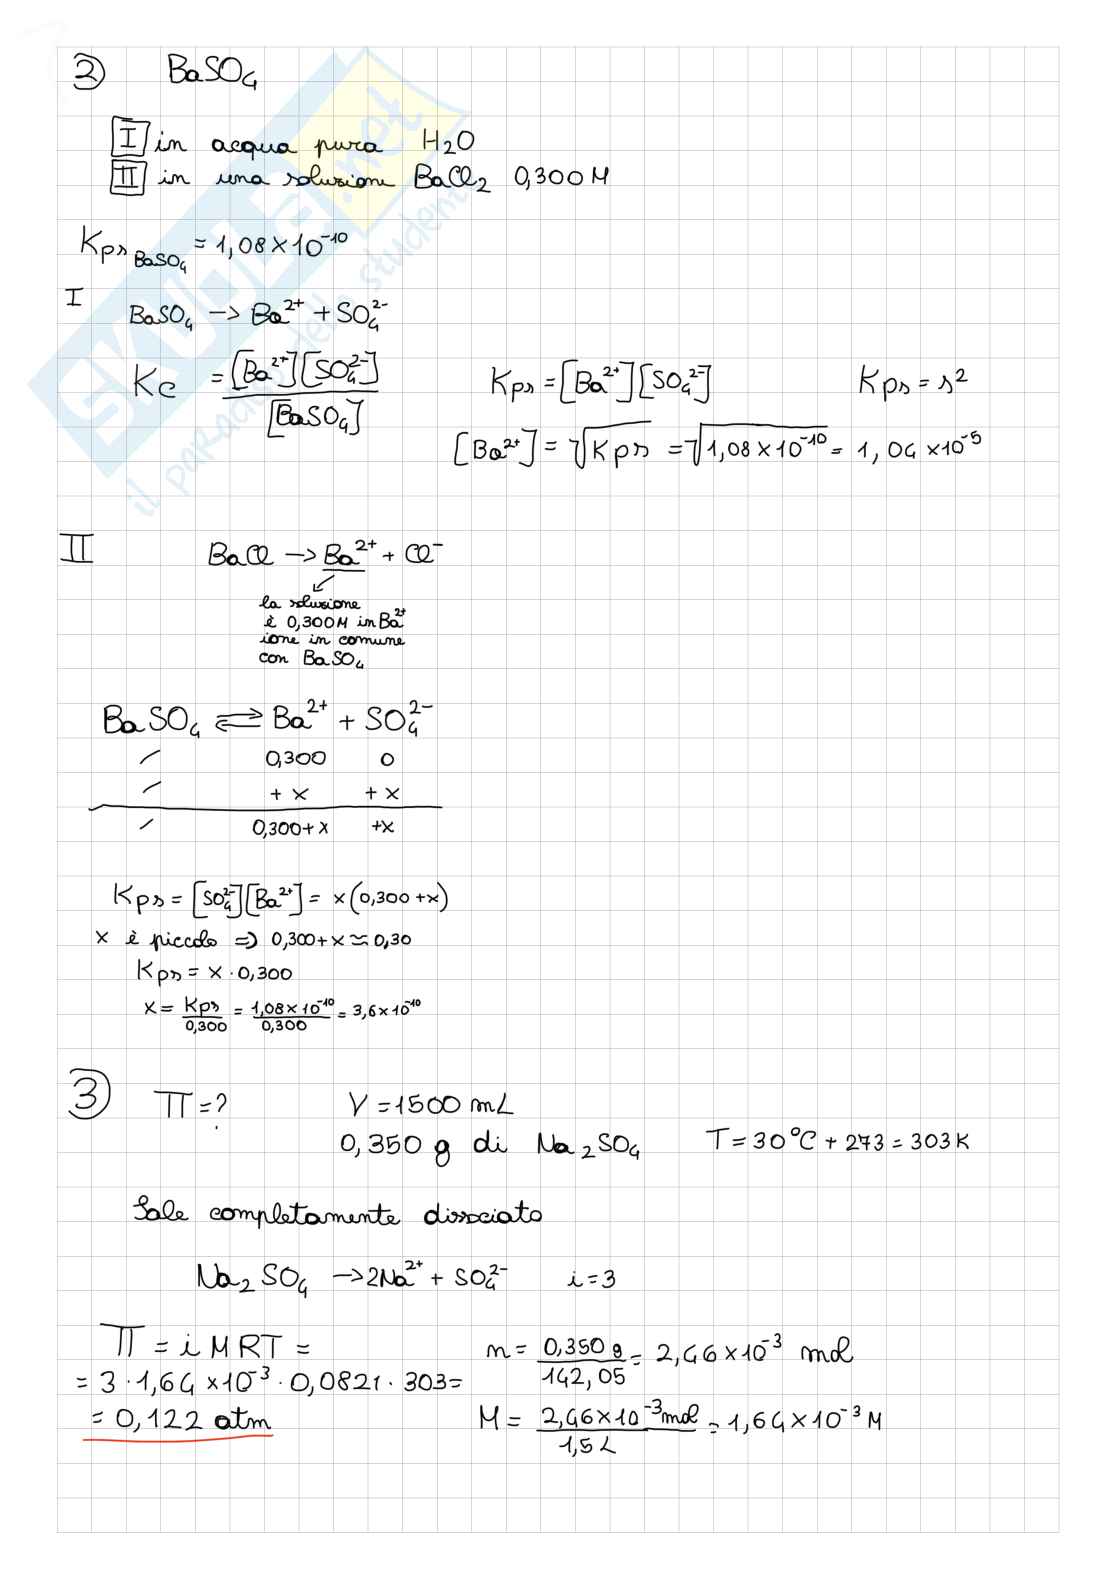 2 BaSO4
I in acqua pura H2O
II in una soluzione BaCl2 0,300 M
Kps BaSO4 = 1,08 × 10^-10
I
BaSO4 → Ba^2+ + SO4^2-
Kc = [Ba^2+][SO4^2-] / [BaSO4] Kps = [Ba^2+][SO4^2-] Kps = s^2
[Ba^2+] = √Kps = √1,08 × 10^-10 = 1,04 × 10^-5
II BaCl → Ba^2+ + Cl^-
la soluzione
è 0,300 M in Ba^2+
ione in comune
con BaSO4
BaSO4 ⇌ Ba^2+ + SO4^2-
/ 0,300 0
/ + x + x
/ 0,300 + x +x
Kps = [SO4^2-][Ba^2+] = x(0,300 + x)
x è piccolo => 0,300 + x ≈ 0,30
Kps = x · 0,300
x = Kps / 0,300 = 1,08 × 10^-10 / 0,300 = 3,6 × 10^-10
3 Π = ? V = 1500 mL
0,350 g di Na2SO4 T = 30 °C + 273 = 303 K
Sale completamente dissociato
Na2SO4 → 2Na^2+ + SO4^2- i = 3
Π = i M R T = n = 0,350 g / 142,05 = 2,46 × 10^-3 mol
= 3 · 1,64 × 10^-3 · 0,0821 · 303 =
= 0,122 atm M = 2,46 × 10^-3 mol / 1,5 L = 1,64 × 10^-3 M
SKUOLA.net
il paradiso dello studente